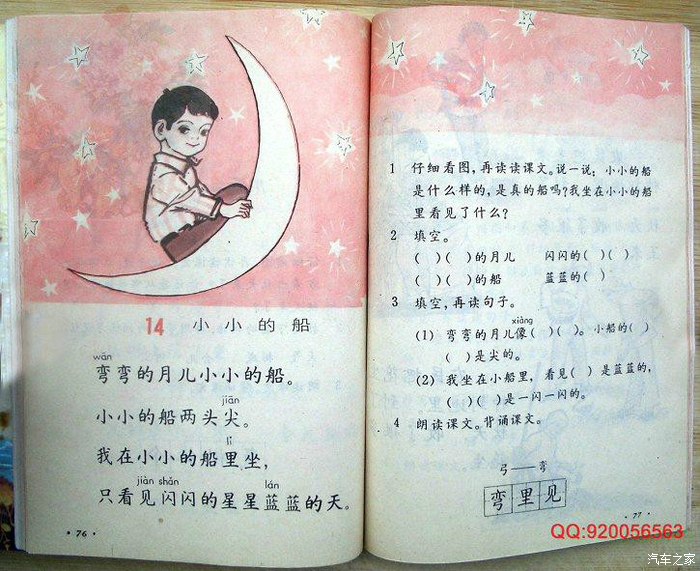 14 小小的船
wān
弯弯的月儿小小的船。
jiān
小小的船两头尖。
lǐ
我在小小的船里坐，
jiàn shǎn lán
只看见闪闪的星星蓝蓝的天。
· 76 ·
1 仔细看图，再读读课文。说一说：小小的船
是什么样的，是真的船吗？我坐在小小的船
里看见了什么？
2 填空。
( )( )的月儿 闪闪的( )( )
( )( )的船 蓝蓝的( )
3 填空，再读句子。
xiàng
(1) 弯弯的月儿像( )( )。小船的( )
( )是尖的。
(2) 我坐在小船里，看见( )是蓝蓝的，
( )( )是一闪一闪的。
4 朗读课文。背诵课文。
弓——弯
弯里见
· 77 ·
QQ:920056563
汽车之家